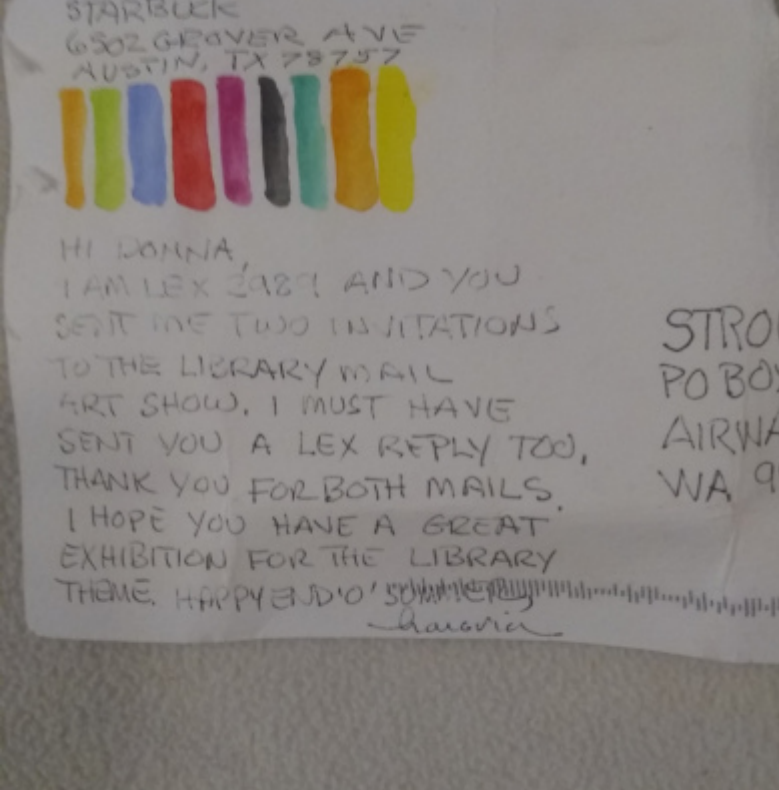 STARBUCK
6502 GROVER AVE
AUSTIN, TX 78757
HI DONNA,
I AM LEX AND YOU
SENT ME TWO INVITATIONS
TO THE LIBRARY MAIL
ART SHOW. I MUST HAVE
SENT YOU A LEX REPLY TOO.
THANK YOU FOR BOTH MAILS.
I HOPE YOU HAVE A GREAT
EXHIBITION FOR THE LIBRARY
THEME. HAPPY END'O'
STRO
PO BO
AIRWA
WA 9